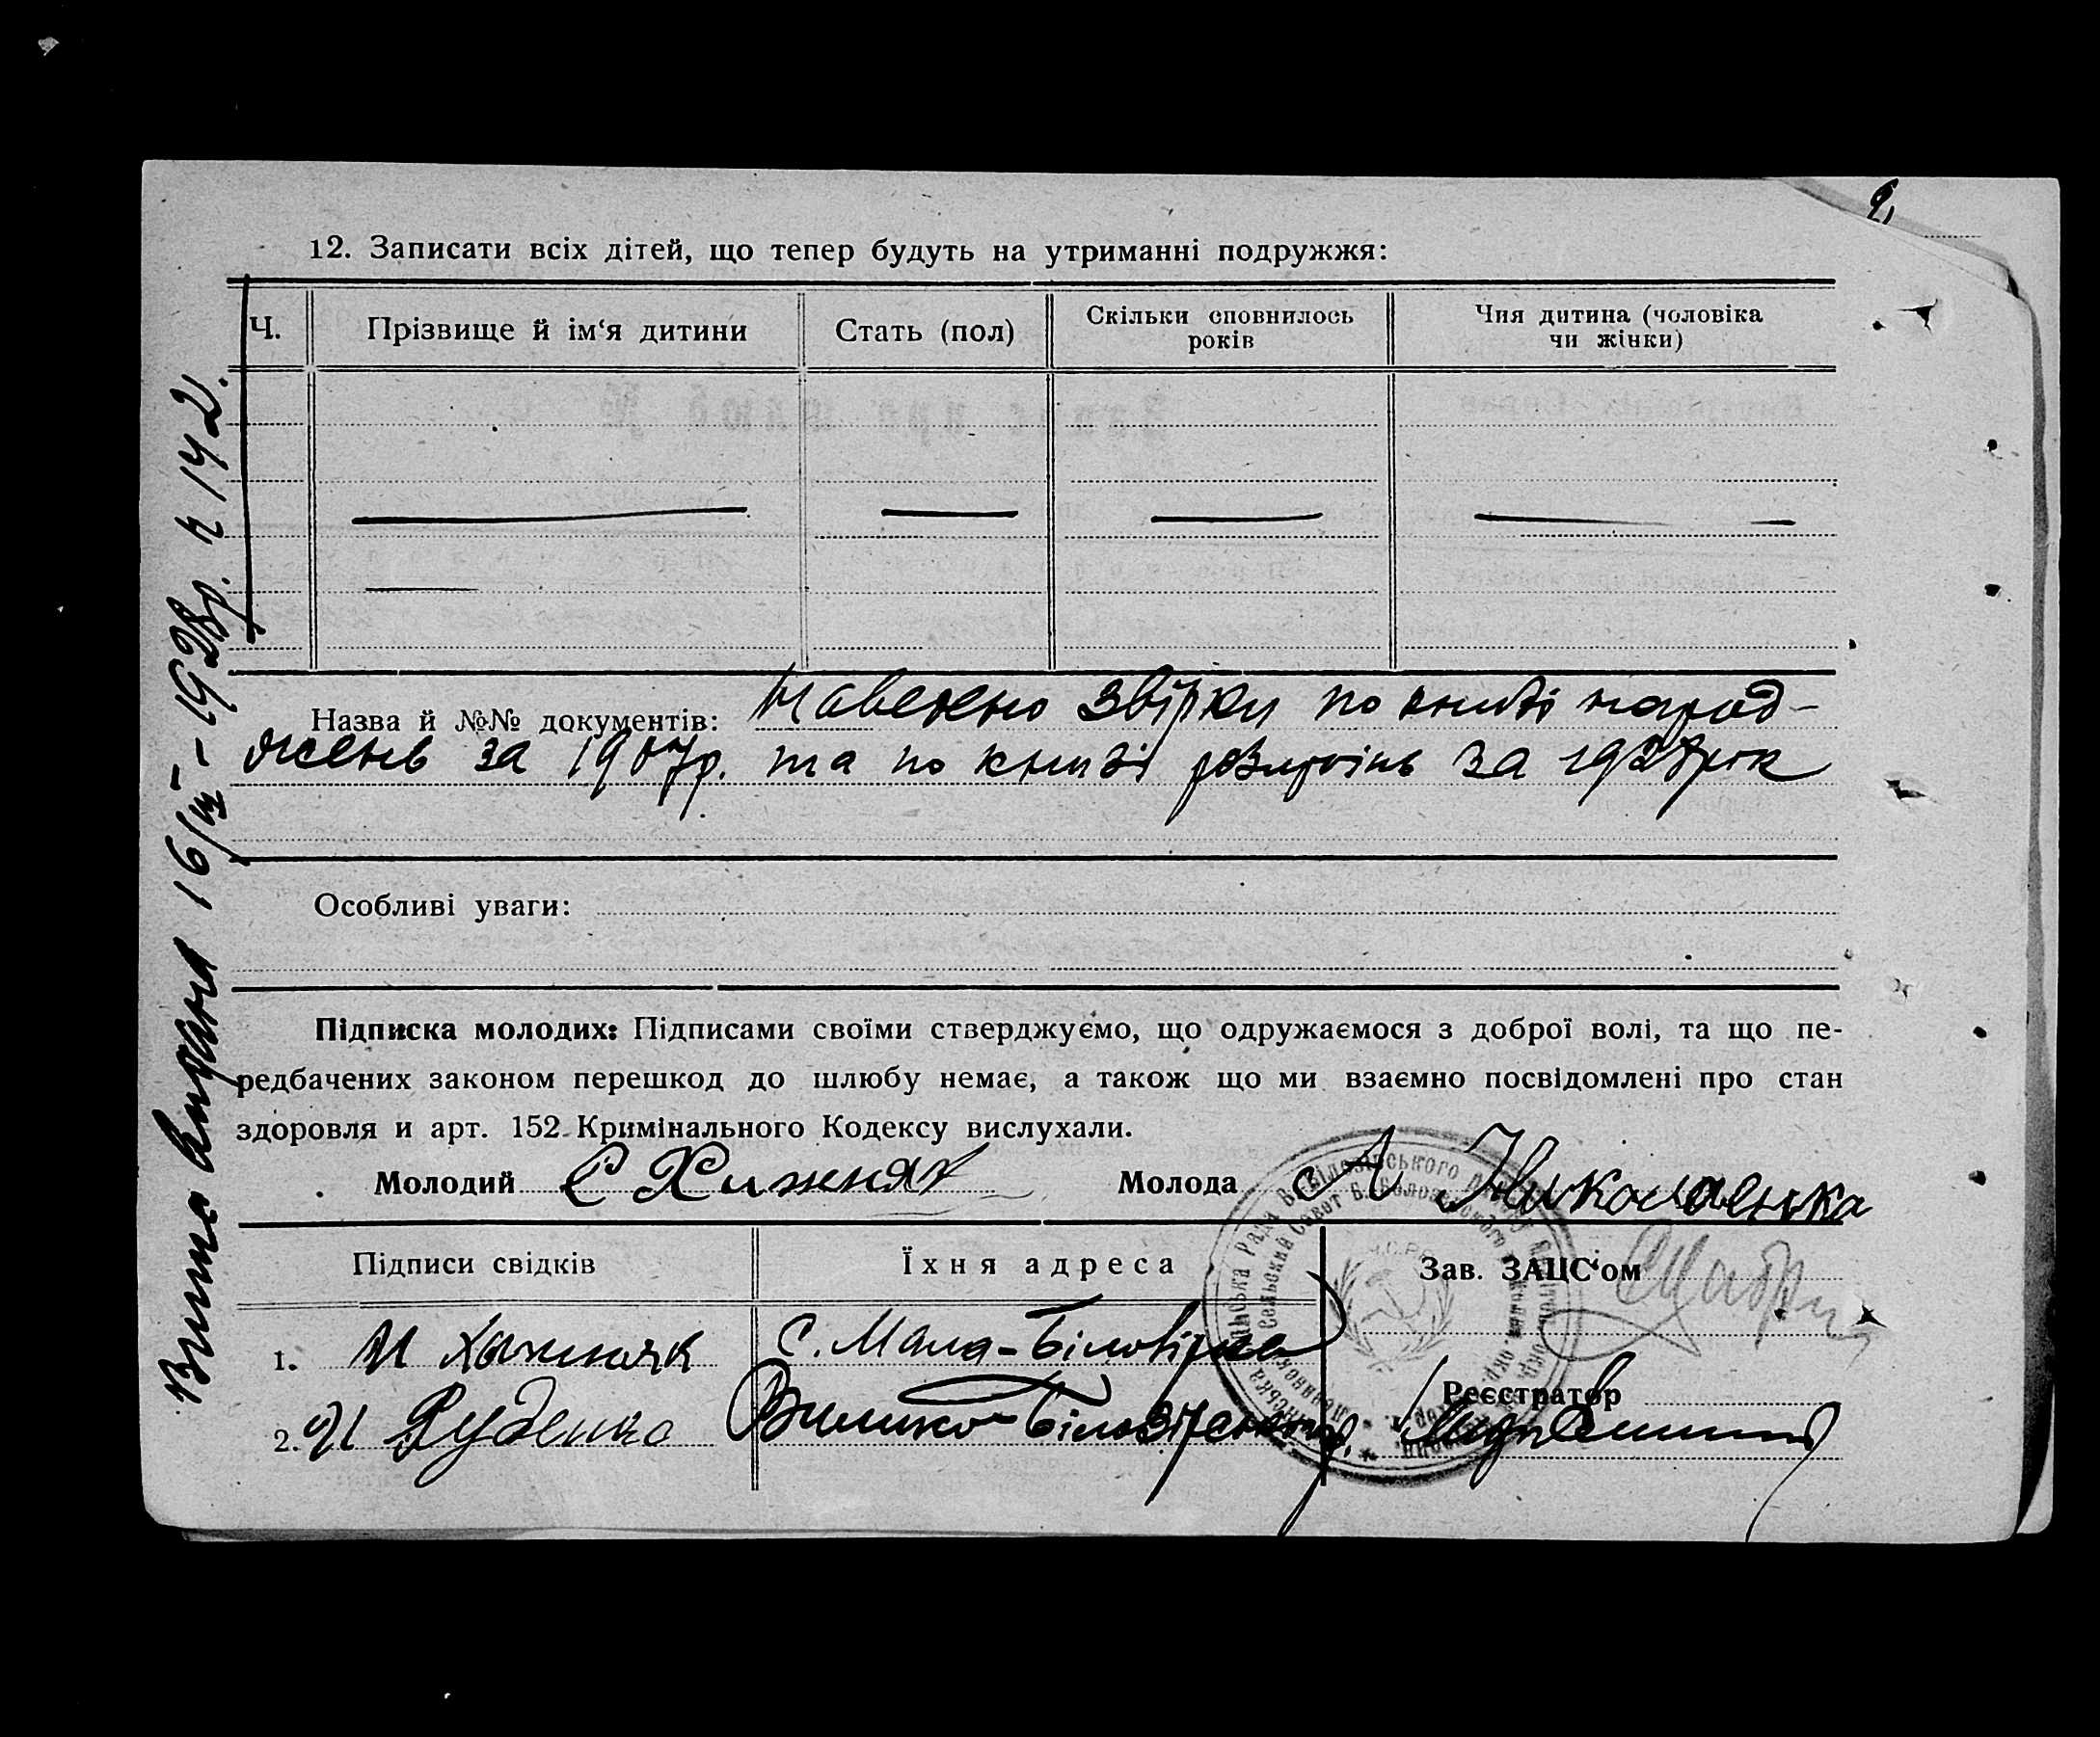 12. Записати всіх дітей, що тепер будуть на утриманні подружжя:
Ч.
Прізвище й ім‘я дитини
Стать (пол)
Скільки сповнилось
років
Чия дитина (чоловіка
чи жінки)
Назва й №№ документів: Наведено звірки по книзі народ-
жень за 1907р. та по книзі розлучінь за 1928 рок
Особливі уваги:
Підписка молодих: Підписами своїми стверджуємо, що одружаємося з доброї волі, та що пе-
редбачених законом перешкод до шлюбу немає, а також що ми взаємно посвідомлені про стан
здоровля и арт. 152 Кримінального Кодексу вислухали.
Молодий С Хижняк
Молода А Николаенка
Підписи свідків
Їхня адреса
Зав. ЗАЦС‘ом
1. И Хижняк
С. Мала-Білозірка
Реєстратор
2. И Руденко
Велико-Білозірськ р.
16/III-1928р. н 142.